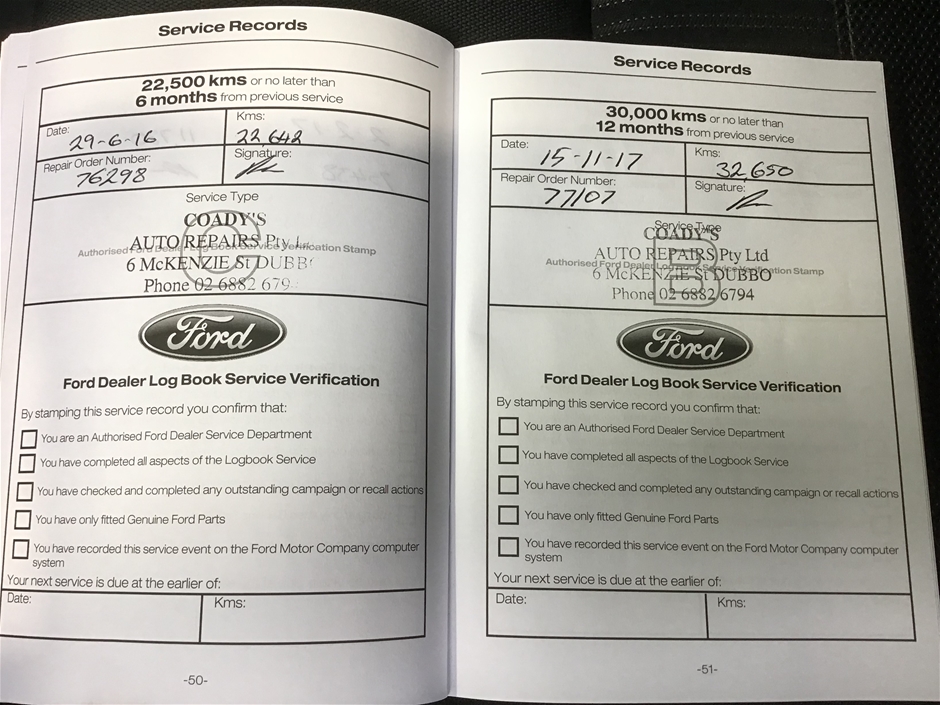 Service Records
22,500 kms or no later than
6 months from previous service
Date: 29-6-16
Kms: 22,642
Repair Order Number: 76298
Signature:
Service Type
C
COADY'S
AUTO REPAIRS Pty L
Authorised Ford Dealer Log Book Service Verification Stamp
6 McKENZIE St DUBB
Phone 02 6882 679
Ford
Ford Dealer Log Book Service Verification
By stamping this service record you confirm that:
You are an Authorised Ford Dealer Service Department
You have completed all aspects of the Logbook Service
You have checked and completed any outstanding campaign or recall actions
You have only fitted Genuine Ford Parts
You have recorded this service event on the Ford Motor Company computer
system
Your next service is due at the earlier of:
Date:
Kms:
-50-
Service Records
30,000 kms or no later than
12 months from previous service
Date: 15-11-17
Kms: 32,650
Repair Order Number: 77107
Signature:
Service Type
B
COADY'S
AUTO REPAIRS Pty Ltd
Authorised Ford Dealer Log Book Service Verification Stamp
6 McKENZIE St DUBBO
Phone 02 6882 6794
Ford
Ford Dealer Log Book Service Verification
By stamping this service record you confirm that:
You are an Authorised Ford Dealer Service Department
You have completed all aspects of the Logbook Service
You have checked and completed any outstanding campaign or recall actions
You have only fitted Genuine Ford Parts
You have recorded this service event on the Ford Motor Company computer
system
Your next service is due at the earlier of:
Date:
Kms:
-51-